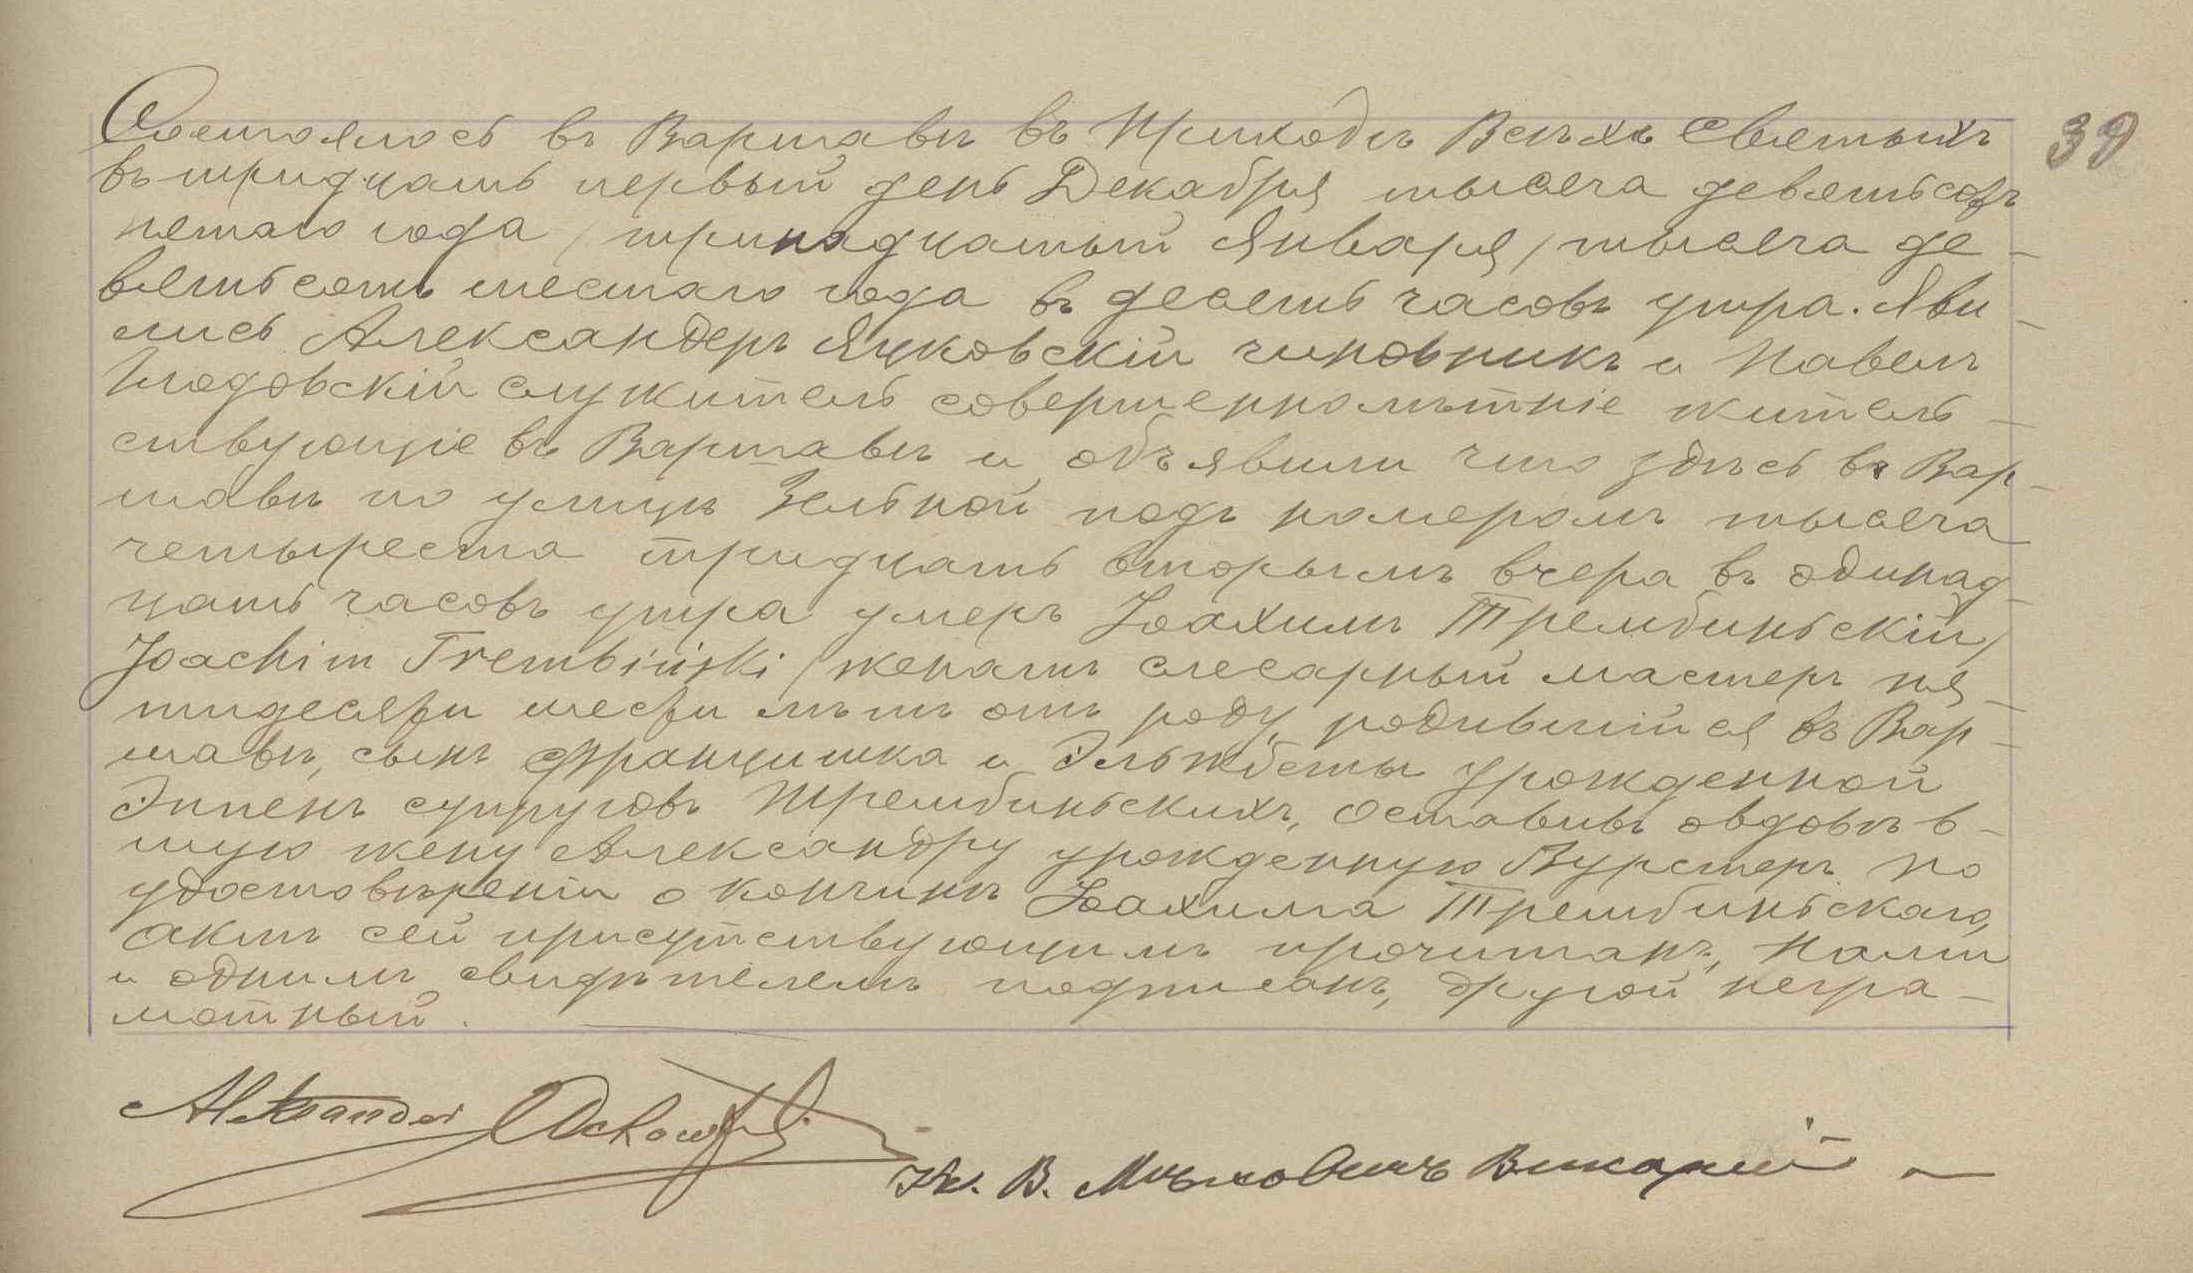 Состоялось въ Варшавѣ въ Приходѣ Всѣхъ Святыхъ
39
въ тридцать первый день Декабря тысяча девятьсотъ
пятаго года /тринадцатый Января/ тысяча де-
вятьсотъ шестаго года въ десять часовъ утра. Яви-
лись Александеръ Яцковскій чиновникъ и Павелъ
служитель совершеннолѣтніе житель-
ствующіе въ Варшавѣ и объявили что здѣсь въ Вар-
шавѣ по улицѣ Зельной подъ номеромъ тысяча
четыреста тридцать вторымъ вчера въ одинад-
цать часовъ утра умеръ Іоахимъ Трембиньскій/
Joachim Trembiński/ женатъ слесарный мастеръ пя-
тидесяти шести лѣтъ отъ роду, родившійся въ Вар-
шавѣ, сынъ Францишка и Эльжбеты урожденной
Эппенъ супруговъ Трембиньскихъ, оставивъ овдовѣв-
шую жену Александру урожденную Вурстеръ. По
удостовѣреніи о кончинѣ Іоахима Трембиньскаго,
актъ сей присутствующимъ прочитанъ, Нами
и однимъ свидѣтелемъ подписанъ, другой негра-
мотный.
Aleksander
Кс. В. Викарій